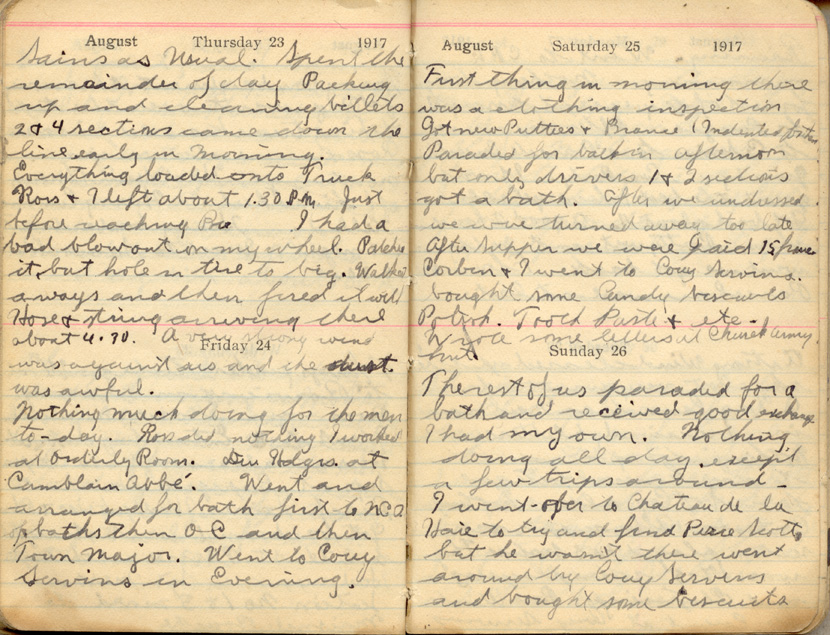 August Thursday 23 1917
Sains as Usual. Spent the
remainder of day Packing
up and cleaning billets
2 & 4 sections came down the
line early in morning.
Everything loaded onto Truck
Ross & I left about 1.30 P.M. Just
before reaching I had a
bad blowout on my wheel. Patched
it, but hole in tire to big. Walked
aways and then fixed it with
Hose & string arriving there
about 4.30. A very strong wind
was against us and the dust.
was awful.
Friday 24
Nothing much doing for the men
to-day. Ross did nothing I worked
at Orderly Room. Div Hdqrs. at
Camblain Abbé. Went and
arranged for bath first to
of baths then O C and then
Town Major. Went to Couy
Servins in Evening.
August Saturday 25 1917
First thing in morning there
was a clothing inspection
Got new Putties & (Indented for
Paraded for bath in afternoon
but only drivers 1 & 2 sections
got a bath. After we undressed
we were turned away too late
After supper we were paid 15 francs
Corbin & I went to Couy Servins.
bought some Candy biscuits
Polish. Tooth Paste & etc -
Wrote some letters at Church Army
hut
Sunday 26
The rest of us paraded for a
bath and received good exchange
I had my own. Nothing
doing all day. except
a few trips around -
I went over to Chateau de la
Haie to try and find Scott
but he wasn't there went
around by Couy Servins
and bought some biscuits